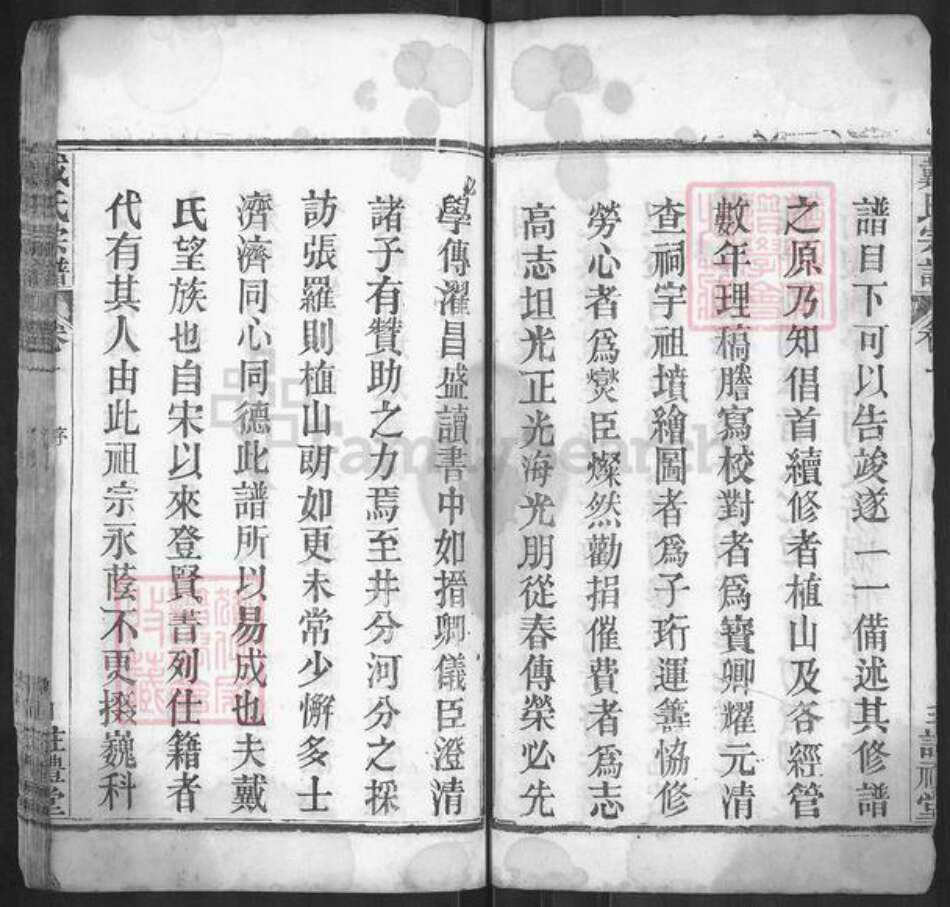 譜目下可以告竣遂一一備述其修譜
之原乃知倡首續修者植山及各經管
數年理稿謄寫校對者為寶卿耀元清
查祠宇祖墳繪圖者為子珩運籌恊修
勞心者為爕臣燦然勸捐催費者為志
高志坦光正光海光朋從春傳榮必先
學傳濯昌盛讀書中如搢卿儀臣澄清
諸子有贊助之力焉至井分河分之採
訪張羅則植山研如更未常少懈多士
濟濟同心同德此譜所以易成也夫戴
氏望族也自宋以來登賢書列仕籍者
代有其人由此祖宗永蔭不更掇巍科
戴氏宗譜
卷一
序
註禮堂